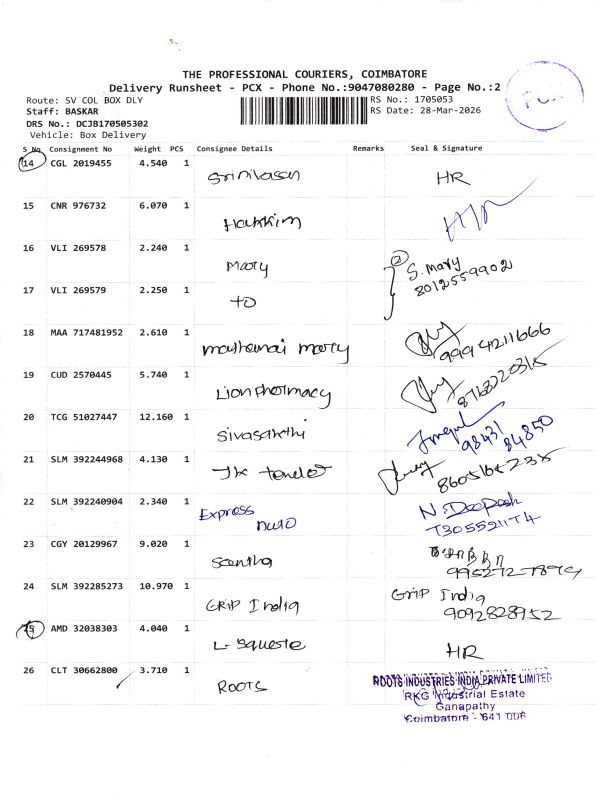 THE PROFESSIONAL COURIERS, COIMBATORE
Delivery Runsheet - PCX - Phone No.:9047080280 - Page No.:2
PCX
Route: SV COL BOX DLY
RS No.: 1705053
Staff: BASKAR
RS Date: 28-Mar-2026
DRS No.: DCJB170505302
Vehicle: Box Delivery
S No Consignment No Weight PCS Consignee Details Remarks Seal & Signature
14 CGL 2019455 4.540 1 Srinivasan HR
15 CNR 976732 6.070 1 Hakkim
16 VLI 269578 2.240 1 Mary 2 S. Mary
8012559902
17 VLI 269579 2.250 1 TO
18 MAA 717481952 2.610 1 mary
9994211666
19 CUD 2570445 5.740 1 Lion Pharmacy
20 TCG 51027447 12.160 1 Sivasakthi
98431 84850
21 SLM 392244968 4.130 1 JK
22 SLM 392240904 2.340 1 Express Auto N. Deepash
23 CGY 20129967 9.020 1
24 SLM 392285273 10.970 1 GRIP India GRIP India
9092828952
25 AMD 32038303 4.040 1 L- Square HR
26 CLT 30662800 3.710 1 ROOTS
ROOTS INDUSTRIES INDIA PRIVATE LIMITED
RKG Industrial Estate
Ganapathy
Coimbatore - 641 006